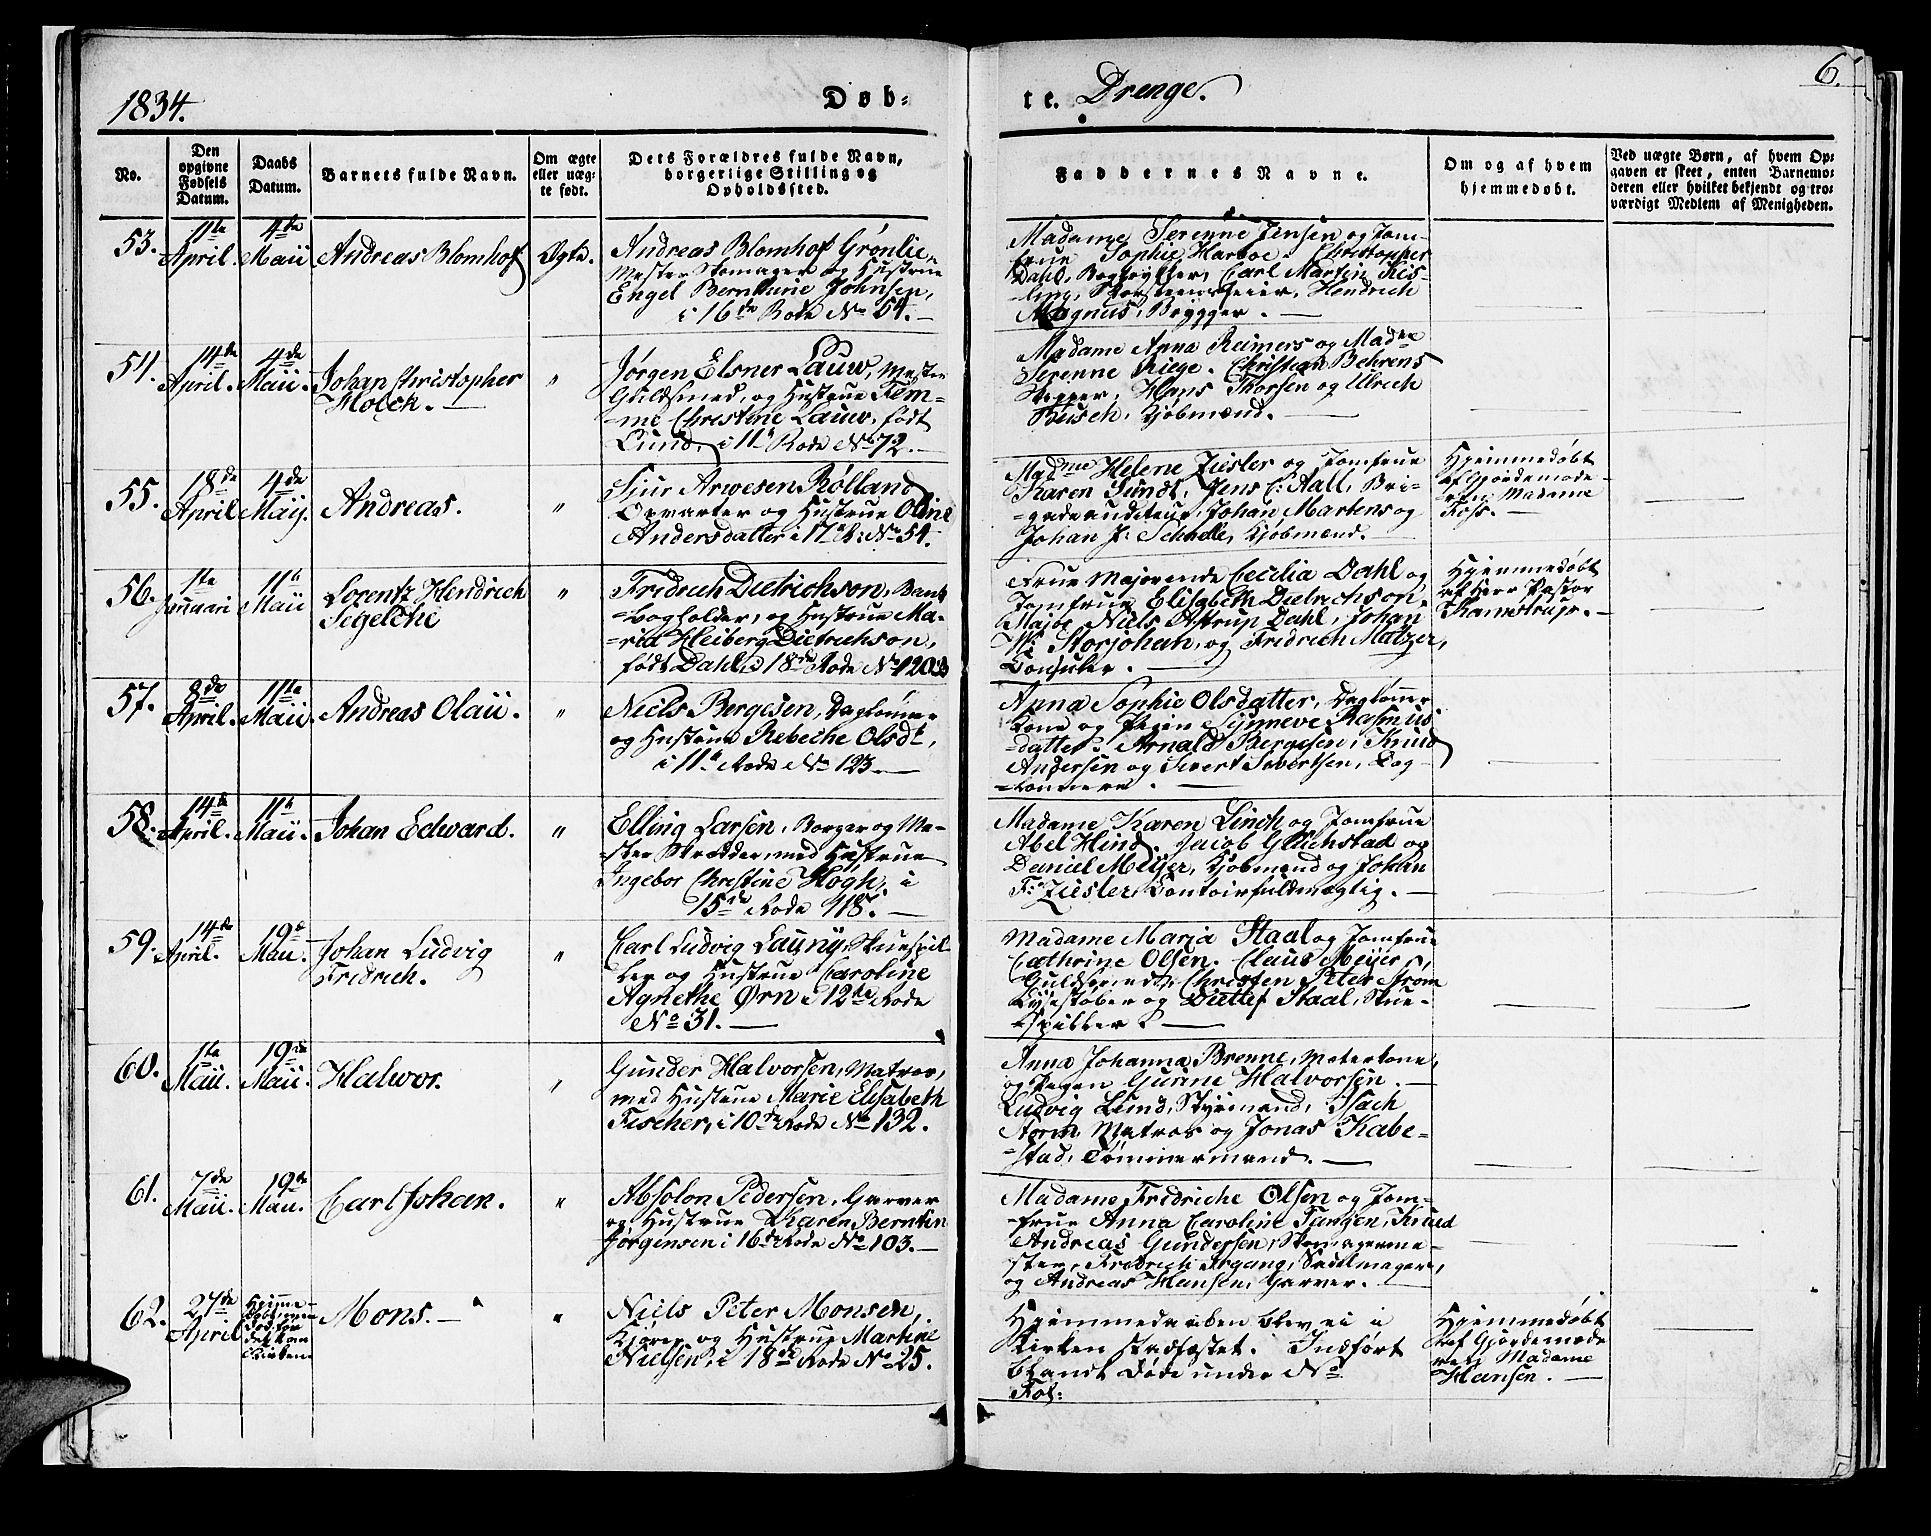 1834.
Døb-
te. Drenge.
6.
No.
Den opgivne Fødsels Datum.
Daabs Datum.
Barnets fulde Navn.
Om ægte eller uægte født.
Dets Forældres fulde Navn, borgerlige Stilling og Opholdssted.
Faddernes Navne.
Om og af hvem hjemmedøbt.
Ved uægte Børn, af hvem Op-
gaven er skeet, enten Barnemo-
deren eller hvilket bekjendt og tro-
værdigt Medlem af Menigheden.
53. 11te April. 4de Maii Andreas Blomhof Ægte.
Andreas Blomhof Grønlie,
Mester Skomager og Hustrue
Engel Bernthine Johnsen,
i 16de Rode No 54.
Madame Serenne Jensen og Jom-
frue Sophie Harboe. Christopher
Dahl, Bogtrykker, Carl Martin Kis-
ling, Skorsteensfeier, Hendrich
Magnus, Brygger.
54. 14de April. 4de Maii. Johan Christopher
Holck. "
Jørgen Elsner Lauw, Mester
Guldsmed, og Hustrue Tem-
me Christine Lauw, født
Lund, i 11te Rode No 72.
Madame Anna Reimers og Madme
Serenne Riege. Christian Behrens
Hans Thorsen og Ulrich
Busch, Kjøbmænd.
55. 18de April 4de Maij. Andreas. "
Sjur Arwesen Rølland
Opvarter og Hustrue Oline
Andersdatter i 17de R: No 54.
Madme Helene Ziesler og Jomfrue
Karen Sundt, Jens C: Aall, Bri-
gadeauditeur, Johan Martens og
Johan J: Schnelle, Kjøbmænd.
Hjemmedøbt
af Gjordemode-
ren, Madame
Foss.
56. 1te Januari 11te Maii Lorentz Hendrich
Segelche "
Fridrich Dietrichson, Bank
bogholder, og Hustrue Ma-
ria Heiberg Dietrichson,
født Dahl i 18de Rode No 120
Frue Majorinde Cecilia Dahl og
Jomfrue Elisabeth Dietrichson,
Major Niels Astrup Dahl, Johan
W: Storjohan, og Fridrich Matzer,
Consuler.
Hjemmedøbt
af Herr Pastor
Kamstrup.
57. 8de April. 11te Maii. Andreas Olaii. "
Niels Bergesen, Dagløner
og Hustrue Rebeche Olsdt,
i 11te Rode No 123.
Anna Sophie Olsdatter, Dagløner-
kone og Pigen Synneve Rasmus-
datter. Arnald Bergesen, Knud
Andersen og Sivert Sivertsen, Dag-
lønnere.
58. 14de April. 11te Maii. Johan Edward. "
Elling Larsen, Borger og Me-
ster Skrædder, med Hustrue
Ingebor Christine Hogh, i
15de Rode 118.
Madame Karen Linch og Jomfrue
Abel Hind. Jacob Gluchstad og
Daniel Meyer, Kjøbmænd og Johan
F: Ziesler, Contoirfuldmægtig.
59. 14de April. 19de Maii. Johan Ludvig
Fridrich. "
Carl Ludvig Launy, Skuespil-
ler og Hustrue Caroline
Agnethe Ørn i 12te Rode
No 31.
Madame Maria Staal og Jomfrue
Cathrine Olsen. Claus Meyer,
Guldsmed, Christen Peter Strøm
Lysestøber og Ditlef Staal, Skue-
spiller.
60. 1te Maii. 19de Maii. Halvor. "
Gunder Halvorsen, Matros,
med Hustrue Marie Elisabeth
Fischer, i 10de Rode No 132.
Anna Johanna Brenne,
og Pigen Gurine Halvorsen.
Ludvig Lund, Styrmand, Isach
Storm, Matros og Jonas Kabe-
stad, Tømmermand.
61. 7de Maii. 19de Maii. Carl Johan. "
Absolon Pedersen, Garver
og Hustrue Karen Berntin
Jørgensen i 16de Rode No 103.
Madame Fridriche Olsen og Jom-
frue Anna Caroline Tangen, Knud
Andreas Gundersen, Skomagerme-
ster, Fredrich Irgang, Sadelmager,
og Andreas Hansen, Garver.
62. 27de April Mons. "
Niels Peter Monsen,
Kjører og Hustrue Martine
Nielsen, i 18de Rode No 25.
Hjemmedaaben blev ei i
Kirken stadfæstet. Indført
blandt Døde under No
Fol:
Hjemmedøbt
af Gjordemode
ren Madame
Hansen.